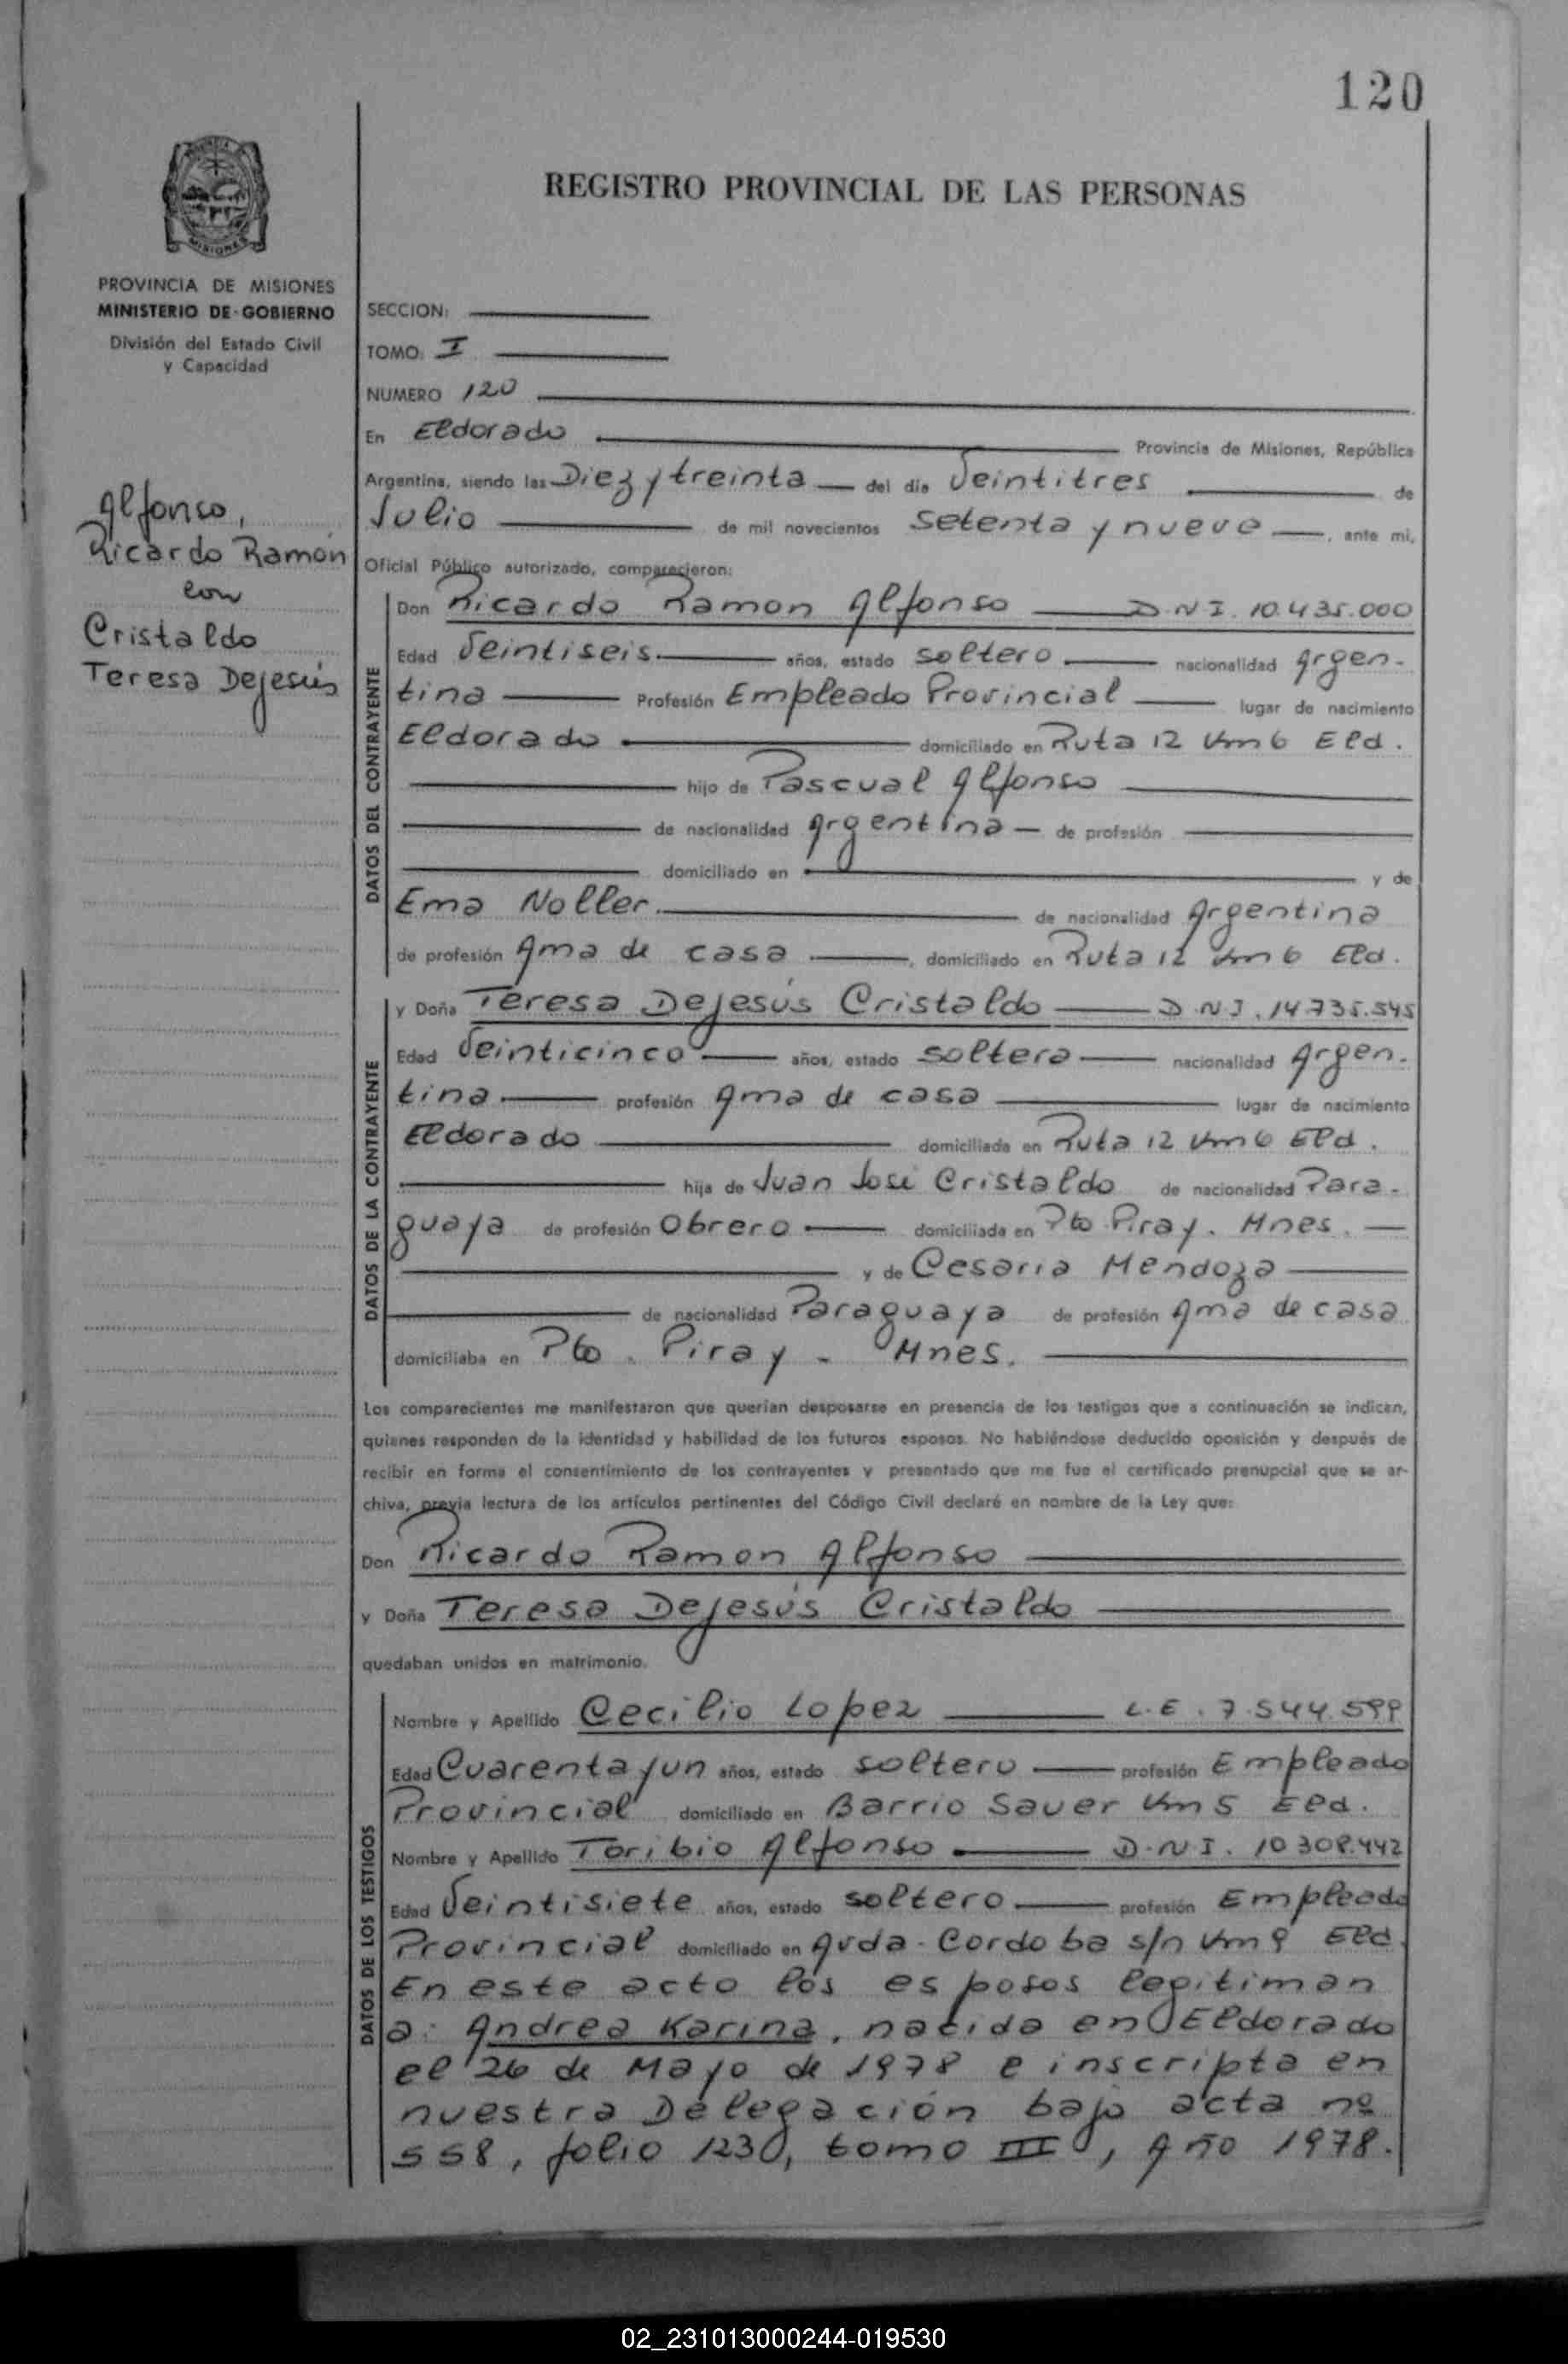 120
REGISTRO PROVINCIAL DE LAS PERSONAS
MISIONES
PROVINCIA DE MISIONES
MINISTERIO DE GOBIERNO
División del Estado Civil
y Capacidad
Alfonso,
Ricardo Ramón
con
Cristaldo
Teresa Dejesús
SECCION:
TOMO: I
NUMERO 120
En Eldorado Provincia de Misiones, República
Argentina, siendo las Diez y treinta del día Veintitres de
Julio de mil novecientos setenta y nueve, ante mi,
Oficial Público autorizado, comparecieron:
DATOS DEL CONTRAYENTE
Don Ricardo Ramon Alfonso D.N.I. 10.435.000
Edad Veintiseis años, estado soltero nacionalidad Argen-
tina Profesión Empleado Provincial lugar de nacimiento
Eldorado domiciliado en Ruta 12 Km 6 Eld.
hijo de Pascual Alfonso
de nacionalidad Argentina de profesión
domiciliado en y de
Ema Noller. de nacionalidad Argentina
de profesión Ama de casa, domiciliado en Ruta 12 Km 6 Eld.
DATOS DE LA CONTRAYENTE
y Doña Teresa Dejesús Cristaldo D.N.I. 14.735.545
Edad Veinticinco años, estado soltera nacionalidad Argen-
tina profesión Ama de casa lugar de nacimiento
Eldorado domiciliada en Ruta 12 Km 6 Eld.
hija de Juan José Cristaldo de nacionalidad Para-
guaya de profesión Obrero domiciliada en Pto Piray. Mnes.
y de Cesaria Mendoza
de nacionalidad Paraguaya de profesión Ama de casa
domiciliaba en Pto. Piray - Mnes.
Los comparecientes me manifestaron que querían desposarse en presencia de los testigos que a continuación se indican,
quienes responden de la identidad y habilidad de los futuros esposos. No habiéndose deducido oposición y después de
recibir en forma el consentimiento de los contrayentes y presentado que me fue el certificado prenupcial que se ar-
chiva, previa lectura de los artículos pertinentes del Código Civil declaré en nombre de la Ley que:
Don Ricardo Ramon Alfonso
y Doña Teresa Dejesús Cristaldo
quedaban unidos en matrimonio.
DATOS DE LOS TESTIGOS
Nombre y Apellido Cecilio Lopez L.E. 7.544.599
Edad Cuarenta y un años, estado soltero profesión Empleado
Provincial domiciliado en Barrio Sauer Km 5 Eld.
Nombre y Apellido Toribio Alfonso D.N.I. 10.308.442
Edad Veintisiete años, estado soltero profesión Empleado
Provincial domiciliado en Avda. Cordoba s/n Km 9 Eld.
En este acto los esposos legitiman
a: Andrea Karina, nacida en Eldorado
el 26 de Mayo de 1978 e inscripta en
nuestra Delegación bajo acta nº
558, folio 123, tomo III, Año 1978.
02_231013000244-019530